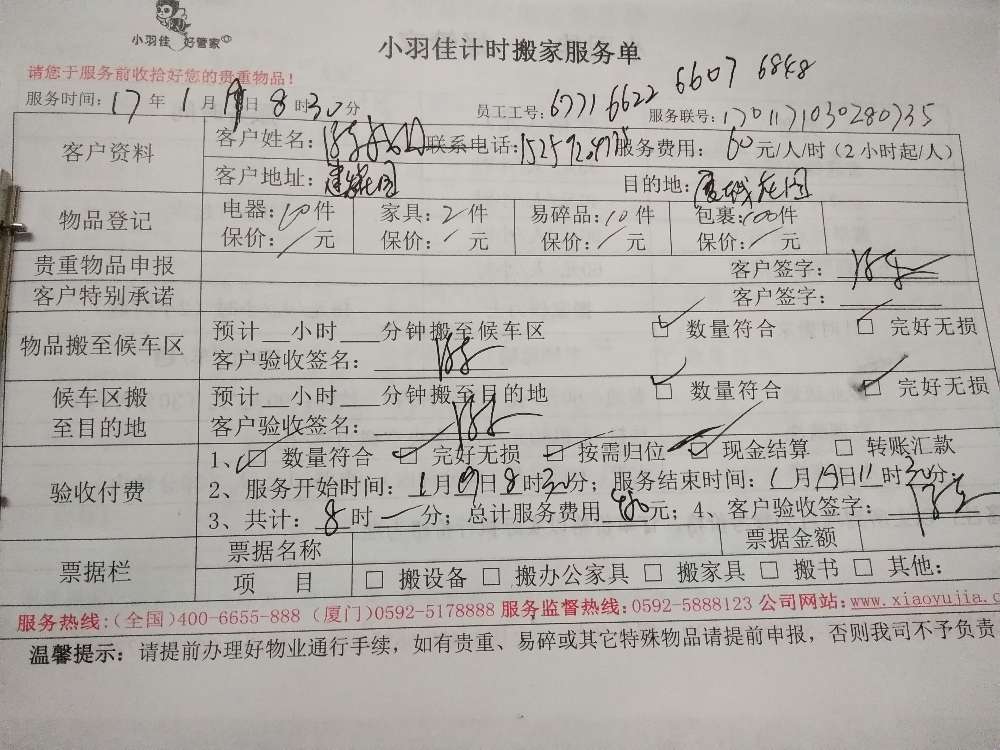 小羽佳 好管家
小羽佳计时搬家服务单
请您于服务前收拾好您的贵重物品！
服务时间：17年1月19日8时30分 员工工号：6771 6622 6607 6848 服务联号：1701171030280735
客户资料 客户姓名： 联系电话： 服务费用：60元/人/时（2小时起/人）
客户地址： 目的地：花园
物品登记 电器：10件 家具：2件 易碎品：10件 包裹：100件
保价：/元 保价：/元 保价：/元 保价：/元
贵重物品申报 客户签字：
客户特别承诺 客户签字：
物品搬至候车区 预计__小时___分钟搬至候车区 ☑ 数量符合 ☑ 完好无损
客户验收签名：
候车区搬至目的地 预计__小时___分钟搬至目的地 ☑ 数量符合 ☑ 完好无损
客户验收签名：
验收付费 1、☑ 数量符合 ☑ 完好无损 ☑ 按需归位 ☑ 现金结算 □ 转账汇款
2、服务开始时间：1月19日8时30分；服务结束时间：1月19日11时30分；
3、共计：8时一分；总计服务费用480元；4、客户验收签字：
票据栏 票据名称 票据金额
项 目 □ 搬设备 □ 搬办公家具 □ 搬家具 □ 搬书 □ 其他：
服务热线：(全国)400-6655-888 (厦门)0592-5178888 服务监督热线：0592-5888123 公司网站：www.xiaoyujia.c
温馨提示：请提前办理好物业通行手续，如有贵重、易碎或其它特殊物品请提前申报，否则我司不予负责